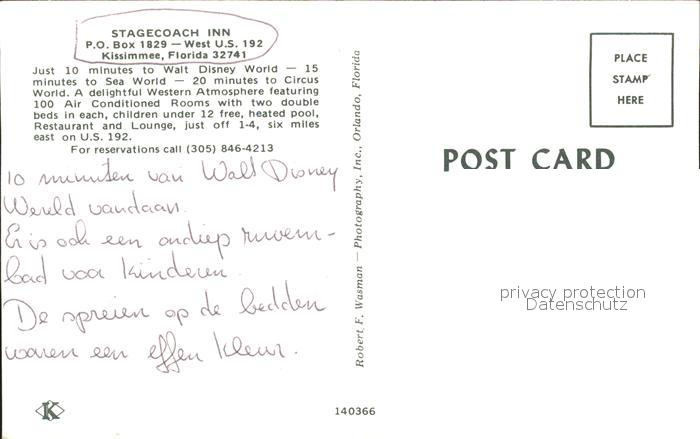 STAGECOACH INN
P.O. Box 1829 — West U.S. 192
Kissimmee, Florida 32741
Just 10 minutes to Walt Disney World — 15
minutes to Sea World — 20 minutes to Circus
World. A delightful Western Atmosphere featuring
100 Air Conditioned Rooms with two double
beds in each, children under 12 free, heated pool,
Restaurant and Lounge, just off 1-4, six miles
east on U.S. 192.
For reservations call (305) 846-4213
10 minuten van Walt Disney
Wereld vandaan.
Er is ook een ondiep zwem-
bad voor kinderen.
De spreien op de bedden
waren een effen kleur.
K
Robert F. Wasman — Photography, Inc., Orlando, Florida
140366
PLACE
STAMP
HERE
POST CARD
privacy protection
Datenschutz